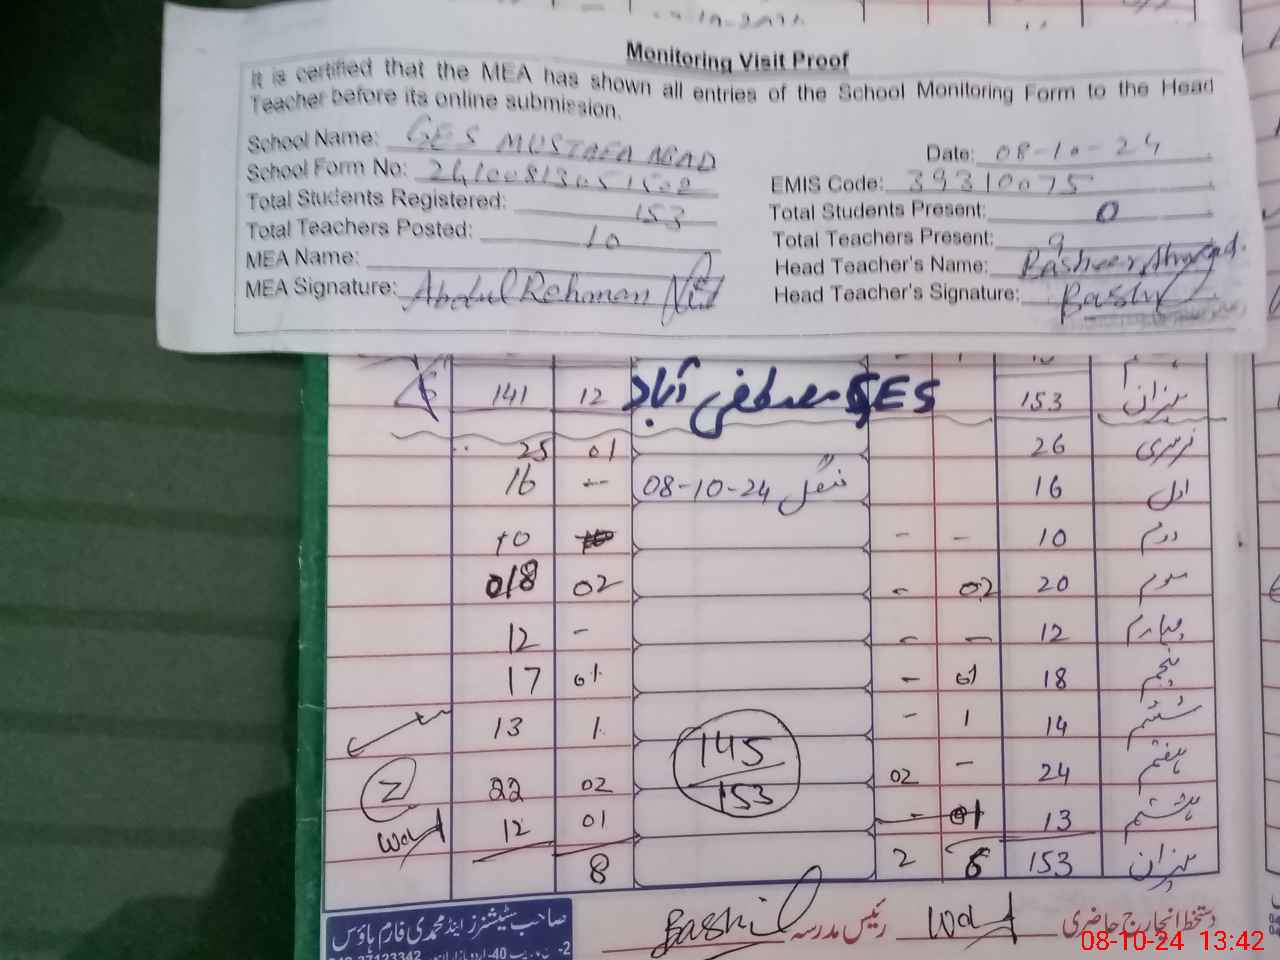 Monitoring Visit Proof
It is certified that the MEA has shown all entries of the School Monitoring Form to the Head
Teacher before its online submission.
School Name: GES MUSTAFA ABAD
Date: 08-10-24
School Form No:
EMIS Code: 39310075
Total Students Registered: 153
Total Students Present: 0
Total Teachers Posted: 10
Total Teachers Present: 9
MEA Name:
Head Teacher's Name: Basheer Ahmad.
MEA Signature: Abdul Rehman
Head Teacher's Signature: Bashir
141 12 GES مصطفیٰ آباد 153 میزان
25 01 26 نرسری
16 -- 08-10-24 منگل 16 اول
10 - - 10 دوم
018 02 - 02 20 سوم
12 - - - 12 چہارم
17 01 - 01 18 پنجم
13 1 - 1 14 ششم
145
153
2 22 02 02 - 24 ہفتم
12 01 - 01 13 ہشتم
8 2 6 153 میزان
دستخط انچارج حاضری رئیس مدرسہ Bashir
صاحب سٹیشنرز اینڈ محمدی فارم ہاؤس
37123342
08-10-24 13:42